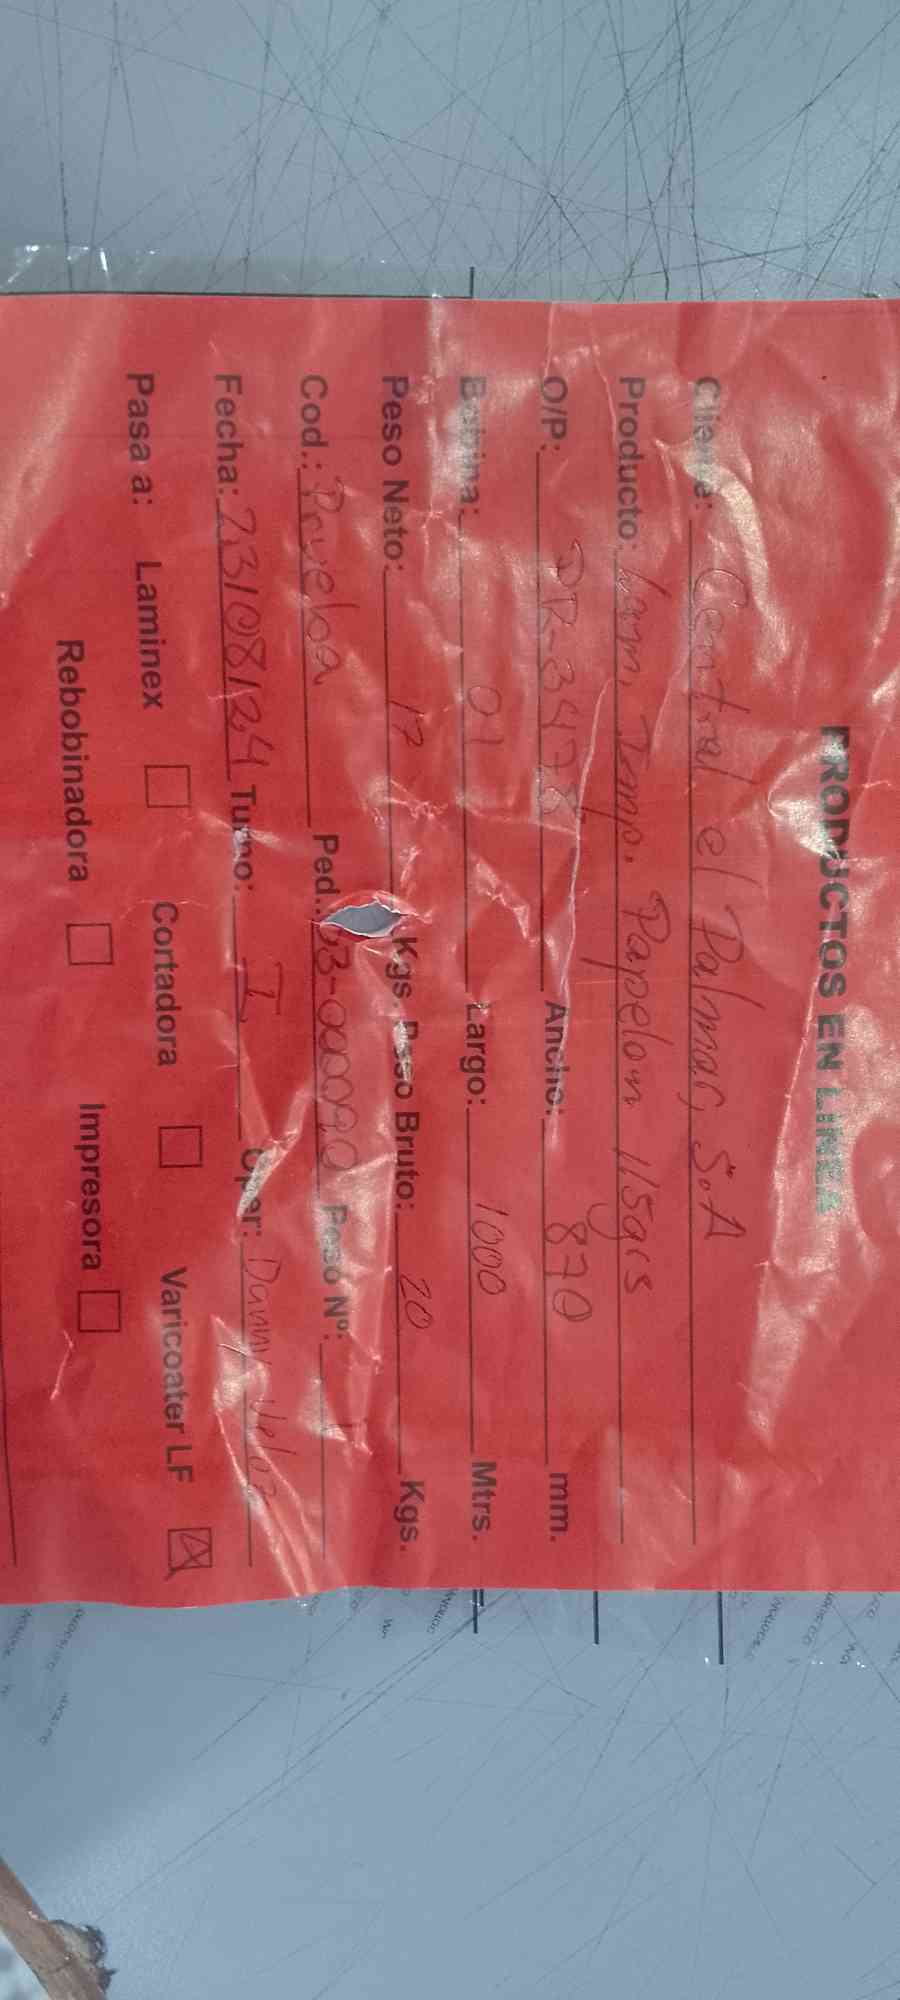 PRODUCTOS EN LINEA
Cliente: Central el Palmar, S.A
Producto: Lam. Imp. Papelon 115grs
O/P: DR-3478 Ancho: 870 mm.
Bobina: 01 Largo: 1000 Mtrs.
Peso Neto: 17 Kgs. Peso Bruto: 20 Kgs.
Cod.: Prueba Ped.: 03-000090 Peso Nº: 1
Fecha: 23/08/24 Turno: I Oper: Danny Veloz
Pasa a: Laminex Cortadora Varicoater LF
Rebobinadora Impresora